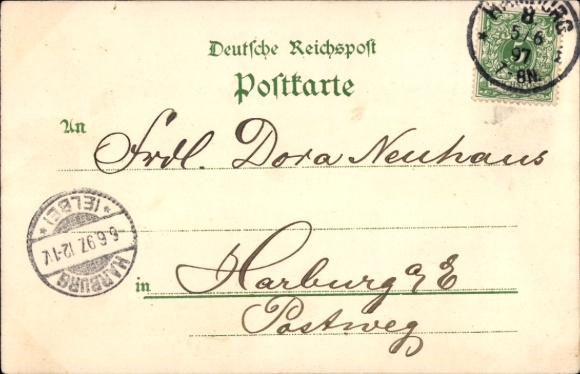 HAMBURG
8
5/6
97
7-8N.
Deutsche Reichspost
Postkarte
An
Frdl. Dora Neuhaus
HARBURG
6.6.97. 12-1V.
* (ELBE) *
in Harburg a/E
Postweg